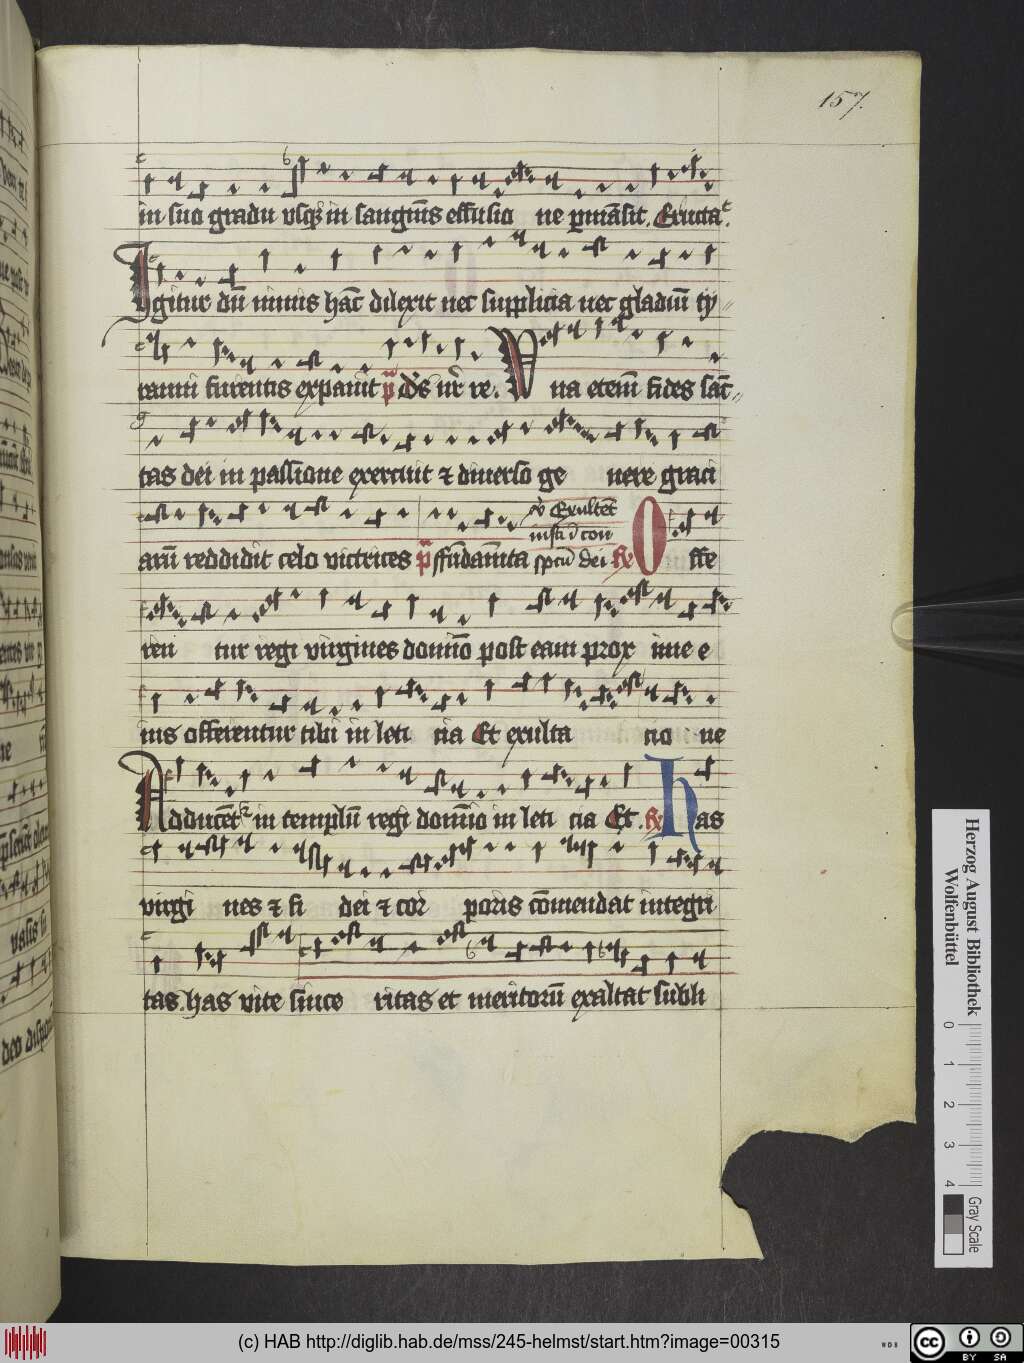 157.
in suo gradu vsqz in sanguīs effusio ne ꝑmāsit. Eructaͭ.
Igitur dū nimis hāc dilexit nec supplicia nec gladiū ty
ranni furentis expauit p̄ dn̄s nr̄ re. Una etenī fides sāc
tas dei in passione exercuit ⁊ diuerso ge nere graci
v̄ Exultēt
iusti ī con
arū reddidit celo victrices p̄ ffūdamēta spectū dei R Offe
ren tur regi virgines domīo post eam prox ime e
ius offerentur tibi in leti cia Et exulta cio ne
Adducēt in templū regi domīo in leti cia Et. R has
virgi nes ⁊ fi dei ⁊ cor poris cōmendat integri
tas. has vite since ritas et meritorū exaltat subli
Herzog August Bibliothek
Wolfenbüttel
0 1 2 3 4
Gray Scale
(c) HAB http://diglib.hab.de/mss/245-helmst/start.htm?image=00315
WDB
CC BY SA